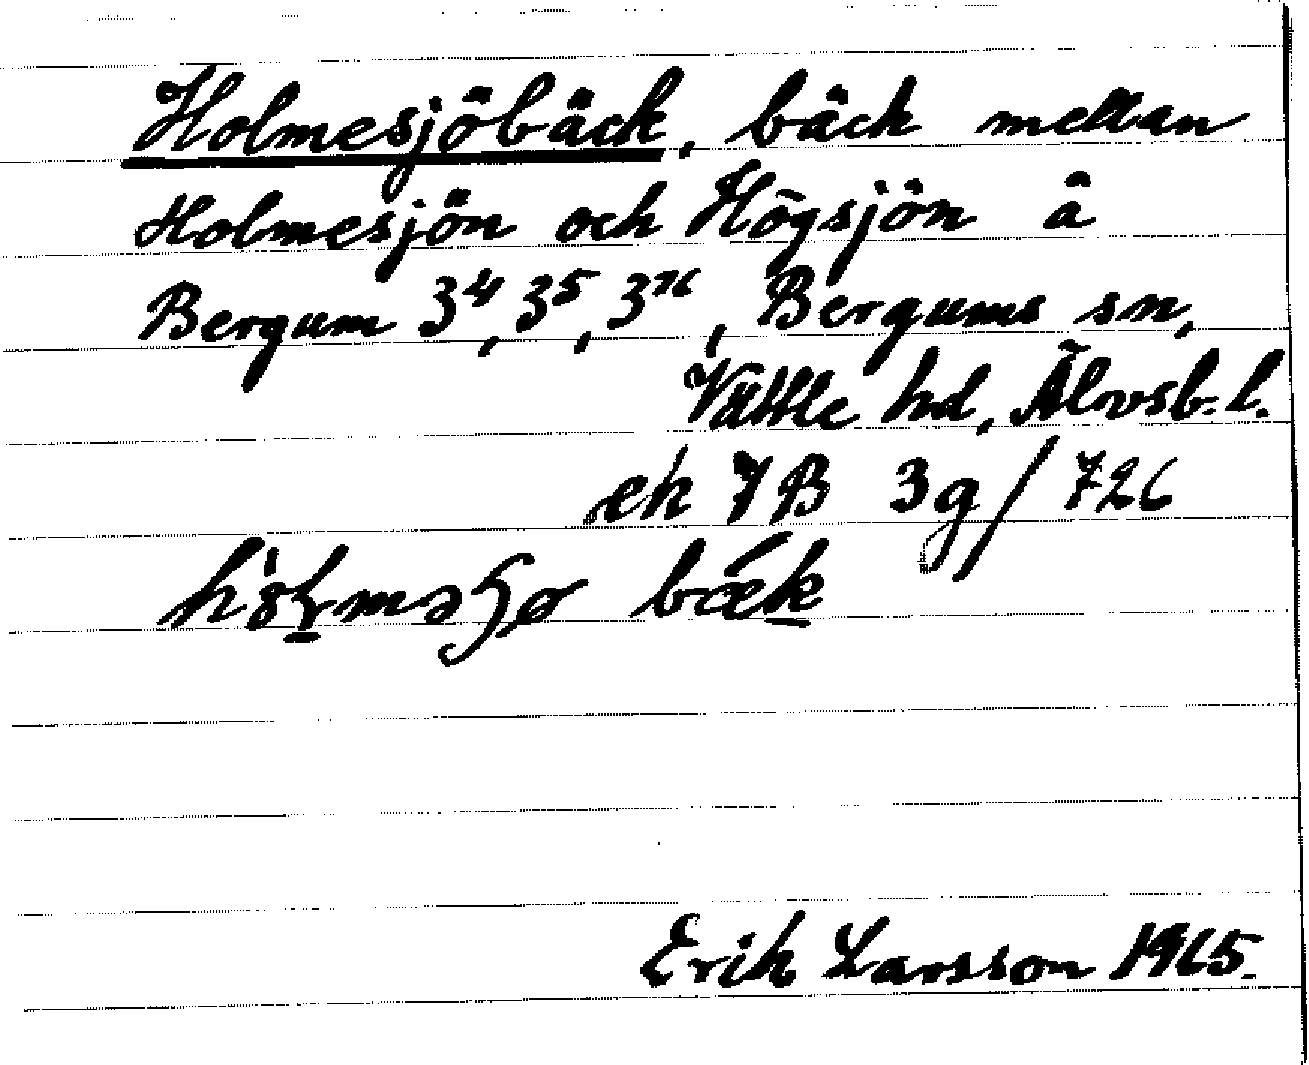 Holmesjöbäck, bäck mellan
Holmesjön och Högsjön å
Bergum 3⁴, 3⁵, 3⁷⁶, Bergums sn,
Vättle hd, Älvsb. l.
ek 7B 3g/726
bæk
Erik Larsson 1965.